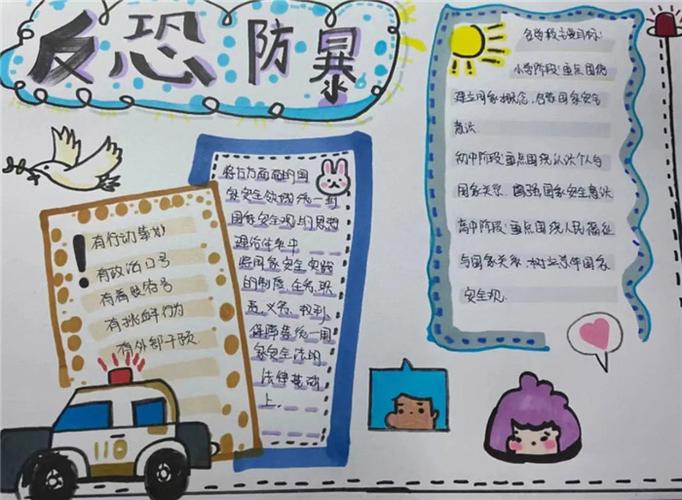 反恐防暴
有行动策划
有政治口号
有著装符号
有挑衅行为
有外部干预
将各方面面的国
家安全领域统一到
国家安全观与思想
理论体系中
将国家安全实践
的制度、任务、职
责、义务、权利
保障等统一用
家安全法的
法律基础
上
各学段主要目标：
小学阶段：重点围绕
建立国家概念，启蒙国家安全
意识
初中阶段：重点围绕认识个人与
国家关系，增强国家安全意识
高中阶段：重点围绕人民福祉
与国家关系，树立总体国家
安全观
110